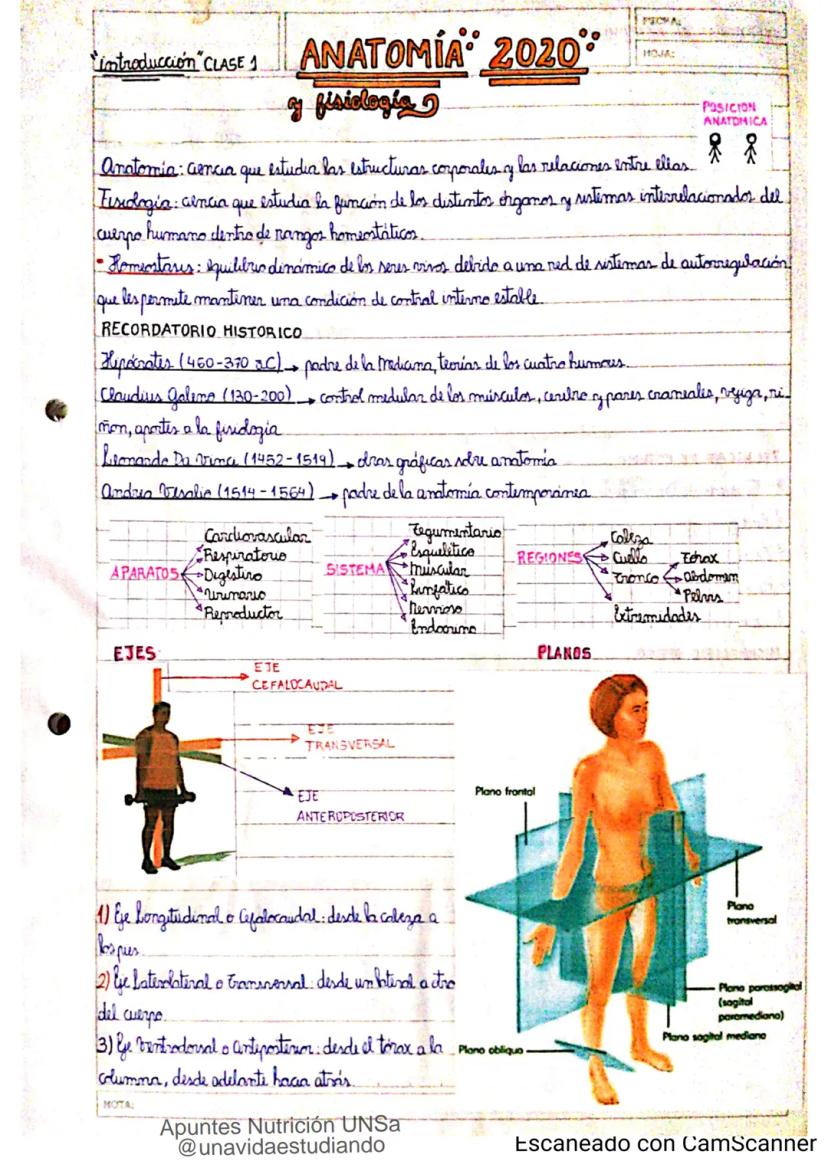 "introducción" CLASE 1
ANATOMÍA 2020
y fisiología
FECHA:
HOJA:
POSICION
ANATOMICA
Anatomía: ciencia que estudia las estructuras corporales y las relaciones entre ellas.
Fisiología: ciencia que estudia la función de los distintos órganos y sistemas interrelacionados del
cuerpo humano dentro de rangos homeostáticos.
• Homeostasis: equilibrio dinámico de los seres vivos debido a una red de sistemas de autorregulación
que les permite mantener una condición de control interno estable.
RECORDATORIO HISTORICO
Hipócrates (460-370 a.C) → padre de la Medicina, teorías de los cuatro humores.
Claudius Galeno (130-200) → control medular de los músculos, cerebro y pares craneales, vejiga, ri-
ñon, aportes a la fisiología
Leonardo Da Vinci (1452-1519) → obras gráficas sobre anatomía
Andrea Vesalio (1514-1564) → padre de la anatomía contemporánea
APARATOS
Cardiovascular
Respiratorio
Digestivo
Urinario
Reproductor
SISTEMA
Tegumentario
Esquelético
Muscular
Linfático
Nervioso
Endocrino
REGIONES
Cabeza
Cuello
Tronco
Tórax
Abdomen
Pelvis
Extremidades
EJES
EJE
CEFALOCAUDAL
EJE
TRANSVERSAL
EJE
ANTEROPOSTERIOR
PLANOS
Plano frontal
Plano
transversal
Plano parasagital
(sagital
paramediano)
Plano sagital mediano
Plano oblicuo
1) Eje Longitudinal o Cefalocaudal: desde la cabeza a
los pies.
2) Eje Laterolateral o Transversal: desde un lateral a otro
del cuerpo.
3) Eje Ventrodorsal o Antiposterior: desde el tórax a la
columna, desde adelante hacia atrás.
NOTA:
Apuntes Nutrición UNSa
@unavidaestudiando
Escaneado con CamScanner